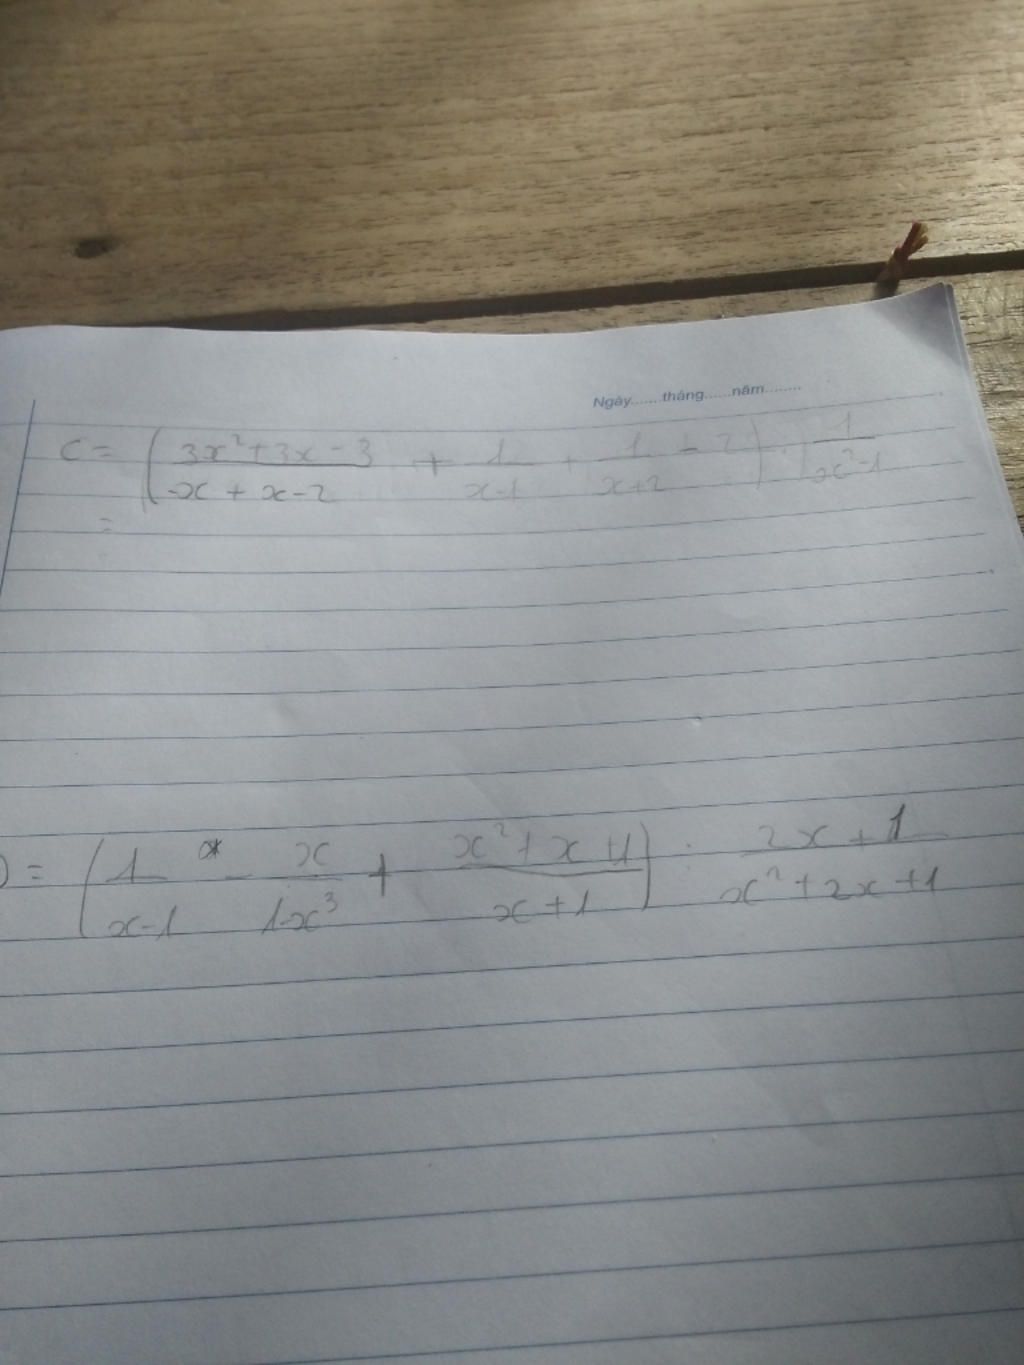 Ngày.......tháng......năm........
C = (3x²+3x-3 / x + x-2 + 1 / x-1 + 1 / x+2 - 2) : 1 / x²-1
=
) = (1 / x-1 - x / 1-x³ + x²+x+1 / x+1) : 2x+1 / x²+2x+1